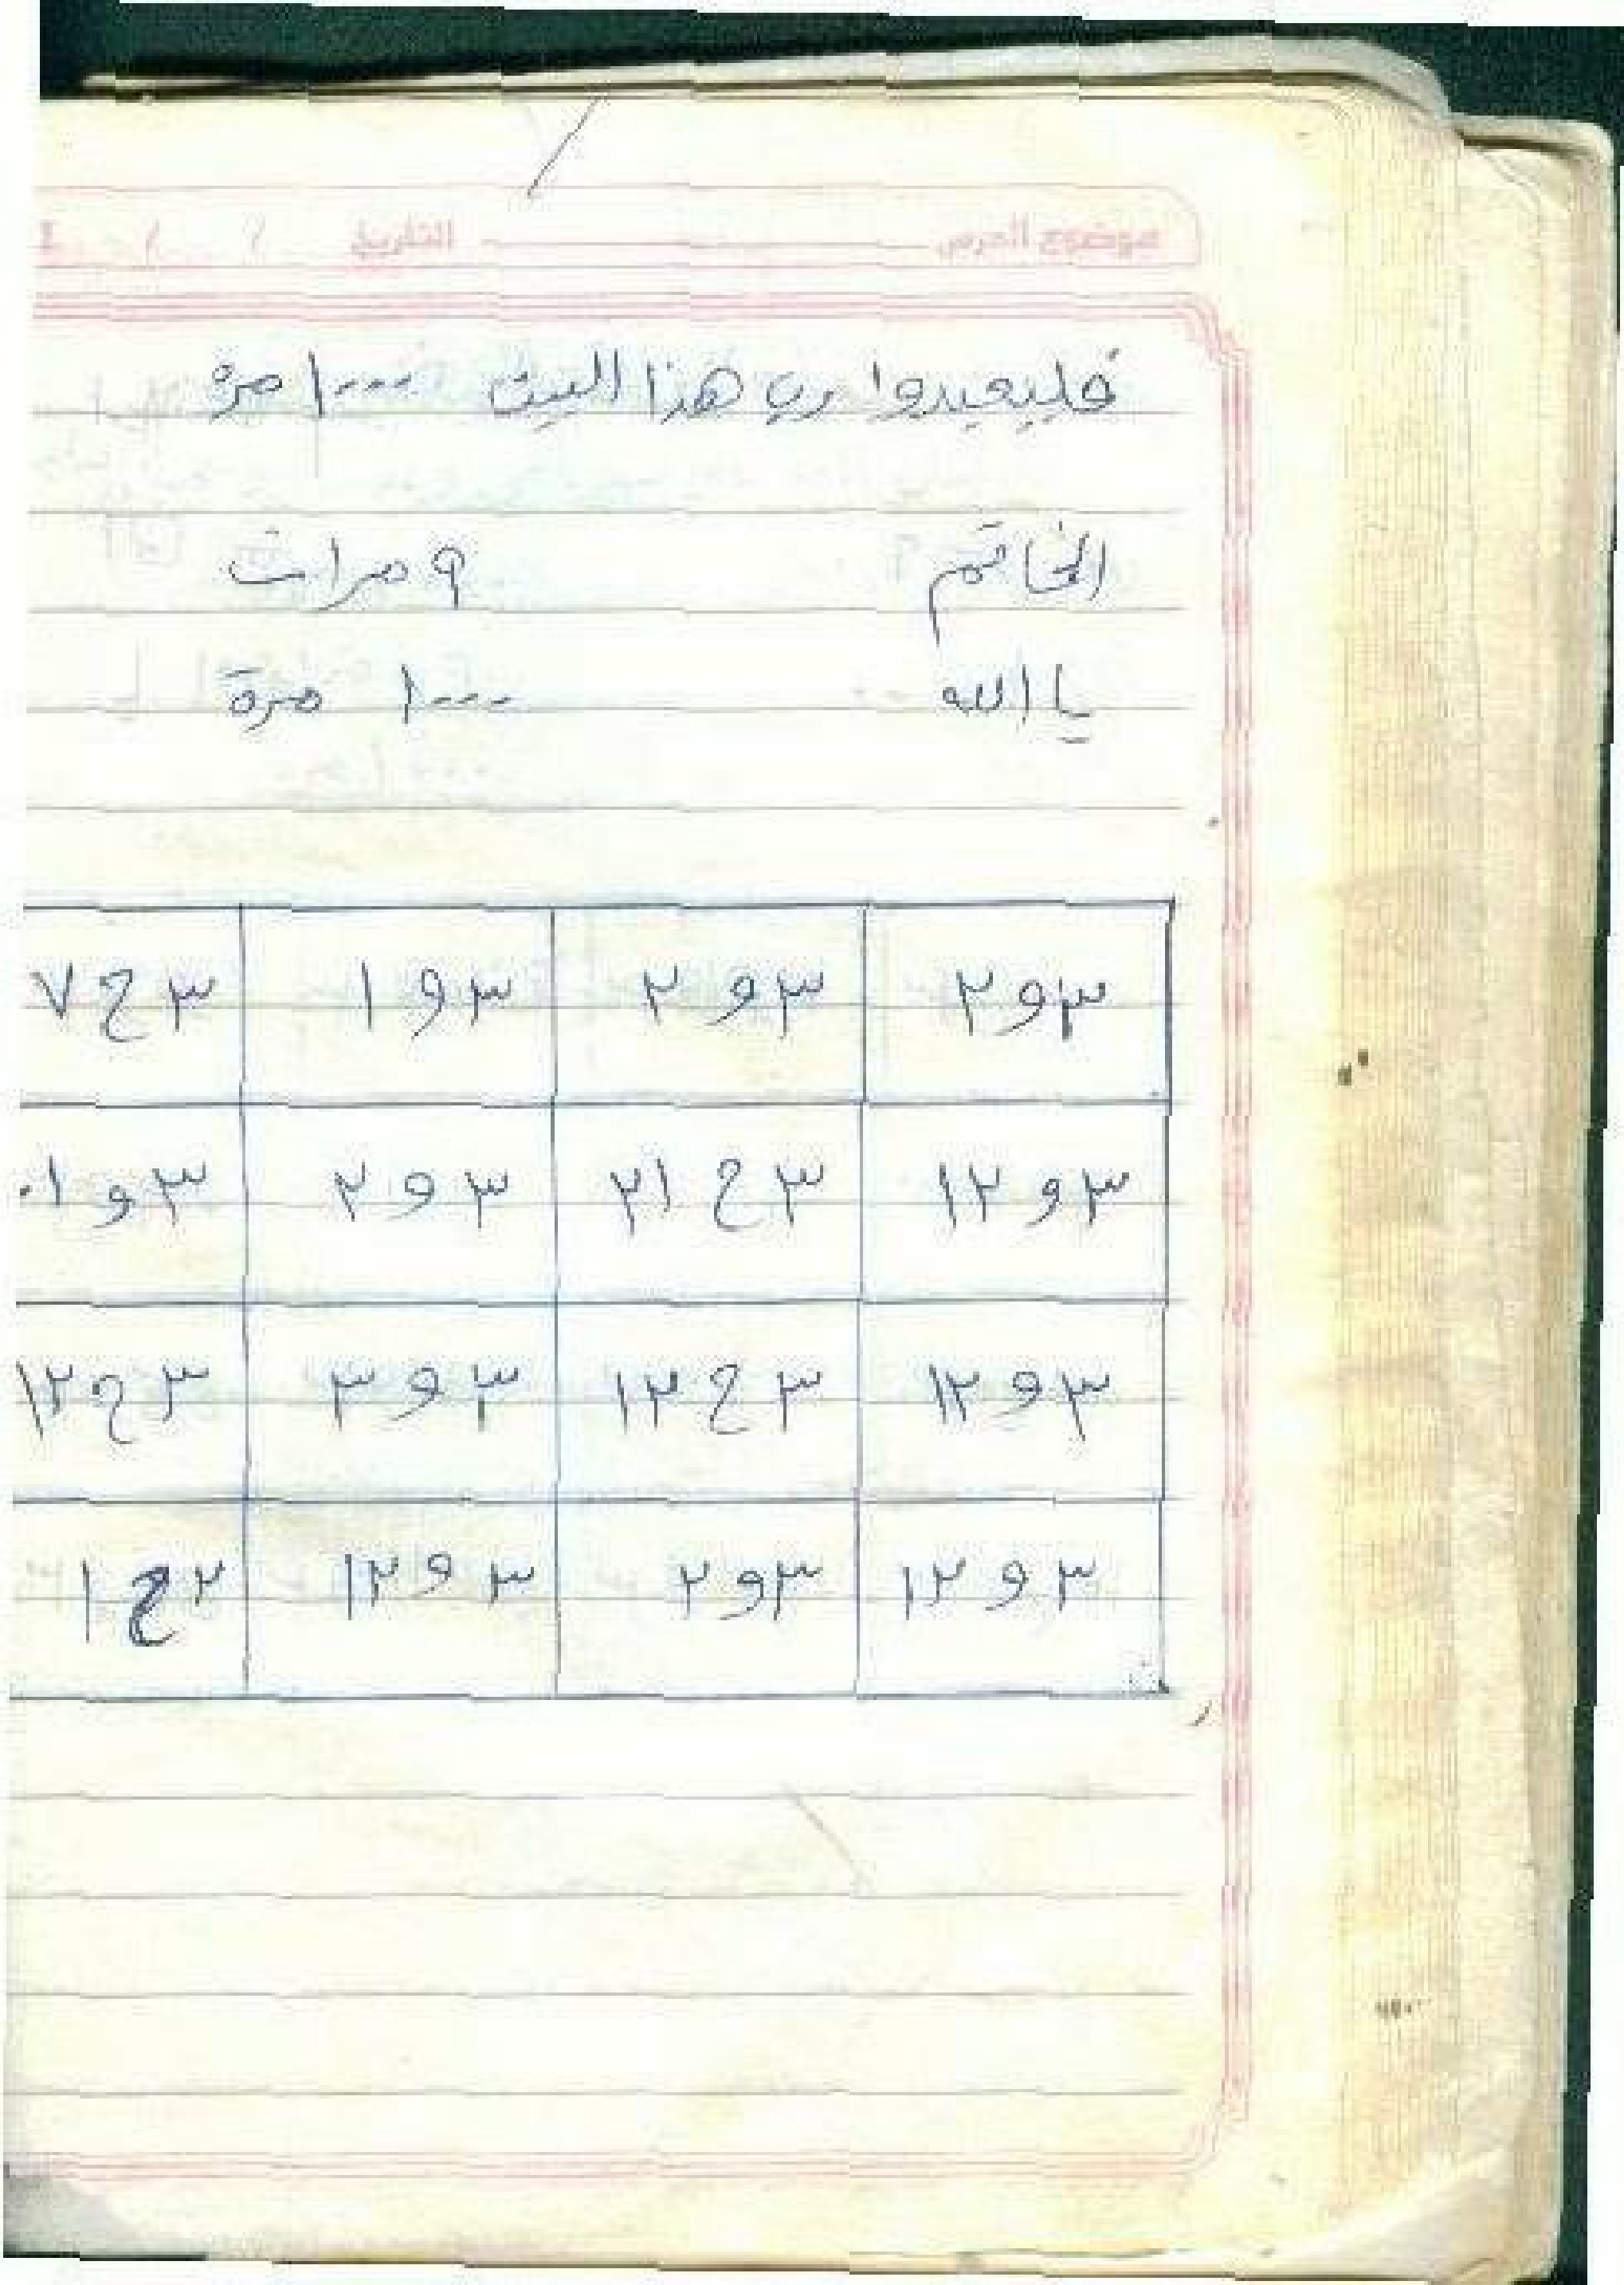 موضوع الدرس التاريخ / /
فليعبدوا رب هذا البيت ١٠٠٠ مرة
الخاتم ٩ مرات
يا الله ١٠٠٠ مرة
٣و٢ ٣و٢ ٣و١ ٣ح٧
٣و١٢ ٣ح٢١ ٣و٢ ٣و١٠
٣و١٢ ٣ح١٢ ٣و٣ ٣ح١٢
٣و١٢ ٣و٢ ٣و١٢ ٢ح١